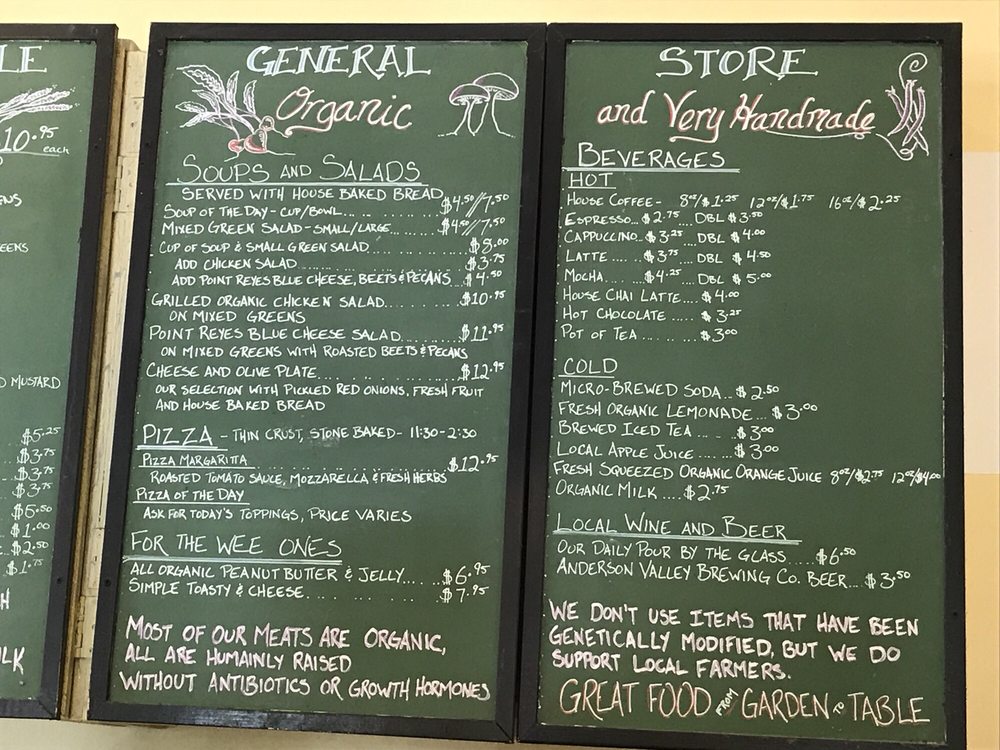 LE
10.95 each
EENS
D MUSTARD
$5.25
$3.75
$3.75
$3.75
$5.50
$1.00
$2.50
$1.75
GENERAL
Organic
SOUPS AND SALADS
SERVED WITH HOUSE BAKED BREAD
SOUP OF THE DAY - CUP/BOWL.......... $4.50//7.50
MIXED GREEN SALAD - SMALL/LARGE....... $4.50//7.50
CUP OF SOUP & SMALL GREEN SALAD.......... $8.00
ADD CHICKEN SALAD.......... $3.75
ADD POINT REYES BLUE CHEESE, BEETS & PECANS $4.50
GRILLED ORGANIC CHICKEN SALAD.......... $10.95
ON MIXED GREENS
POINT REYES BLUE CHEESE SALAD.......... $11.95
ON MIXED GREENS WITH ROASTED BEETS & PECANS
CHEESE AND OLIVE PLATE.......... $12.95
OUR SELECTION WITH PICKLED RED ONIONS, FRESH FRUIT
AND HOUSE BAKED BREAD
PIZZA - THIN CRUST, STONE BAKED - 11:30-2:30
PIZZA MARGARITTA.......... $12.95
ROASTED TOMATO SAUCE, MOZZARELLA & FRESH HERBS
PIZZA OF THE DAY
ASK FOR TODAY'S TOPPINGS, PRICE VARIES
FOR THE WEE ONES
ALL ORGANIC PEANUT BUTTER & JELLY...... $6.95
SIMPLE TOASTY & CHEESE.......... $7.95
MOST OF OUR MEATS ARE ORGANIC,
ALL ARE HUMAINLY RAISED
WITHOUT ANTIBIOTICS OR GROWTH HORMONES
STORE
and Very Handmade
BEVERAGES
HOT
HOUSE COFFEE - 8oz/$1.25 12oz/$1.75 16oz/$2.25
ESPRESSO... $2.75 DBL $3.50
CAPPUCCINO.. $3.25 DBL $4.00
LATTE ...... $3.75 DBL $4.50
MOCHA...... $4.25 DBL $5.00
HOUSE CHAI LATTE... $4.00
HOT CHOCOLATE ..... $3.25
POT OF TEA........ $3.00
COLD
MICRO-BREWED SODA.. $2.50
FRESH ORGANIC LEMONADE... $3.00
BREWED ICED TEA ...... $3.00
LOCAL APPLE JUICE ..... $3.00
FRESH SQUEEZED ORGANIC ORANGE JUICE 8oz/$2.75 12oz/$4.00
ORGANIC MILK .... $2.75
LOCAL WINE AND BEER
OUR DAILY POUR BY THE GLASS .... $6.50
ANDERSON VALLEY BREWING CO. BEER... $3.50
WE DON'T USE ITEMS THAT HAVE BEEN
GENETICALLY MODIFIED, BUT WE DO
SUPPORT LOCAL FARMERS.
GREAT FOOD FROM GARDEN TO TABLE